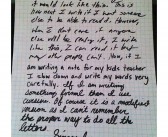 it would look like this. This is
how I write if I want someone
else to be able to read it. However,
when I don't care if anyone
else will be reading it, I write
like this, I can read it but
many other people can't. Now, if I
am writing a note for my kids teacher
I slow down and write my words very
carefully. If I am writing
something formal then I use
cursive. Of course it is a modified
cursive as I can't remember
the proper way to do all the
letters.